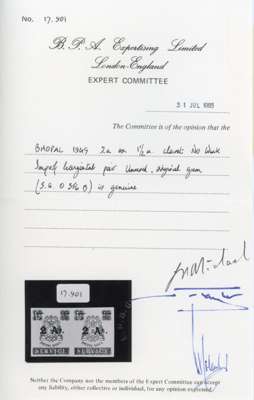 No. 17.901
B. P. A. Expertising Limited
London-England
EXPERT COMMITTEE
31 JUL 1985
The Committee is of the opinion that the
BHOPAL 1949 2a on 1½a
Imperf horizontal pair unused, original gum
(S.G. O 356 b) is genuine
17.901
2 As 2 As
SERVICE SERVICE
Neither the Company nor the members of the Expert Committee can accept
any liability, either collective or individual, for any opinion expressed.